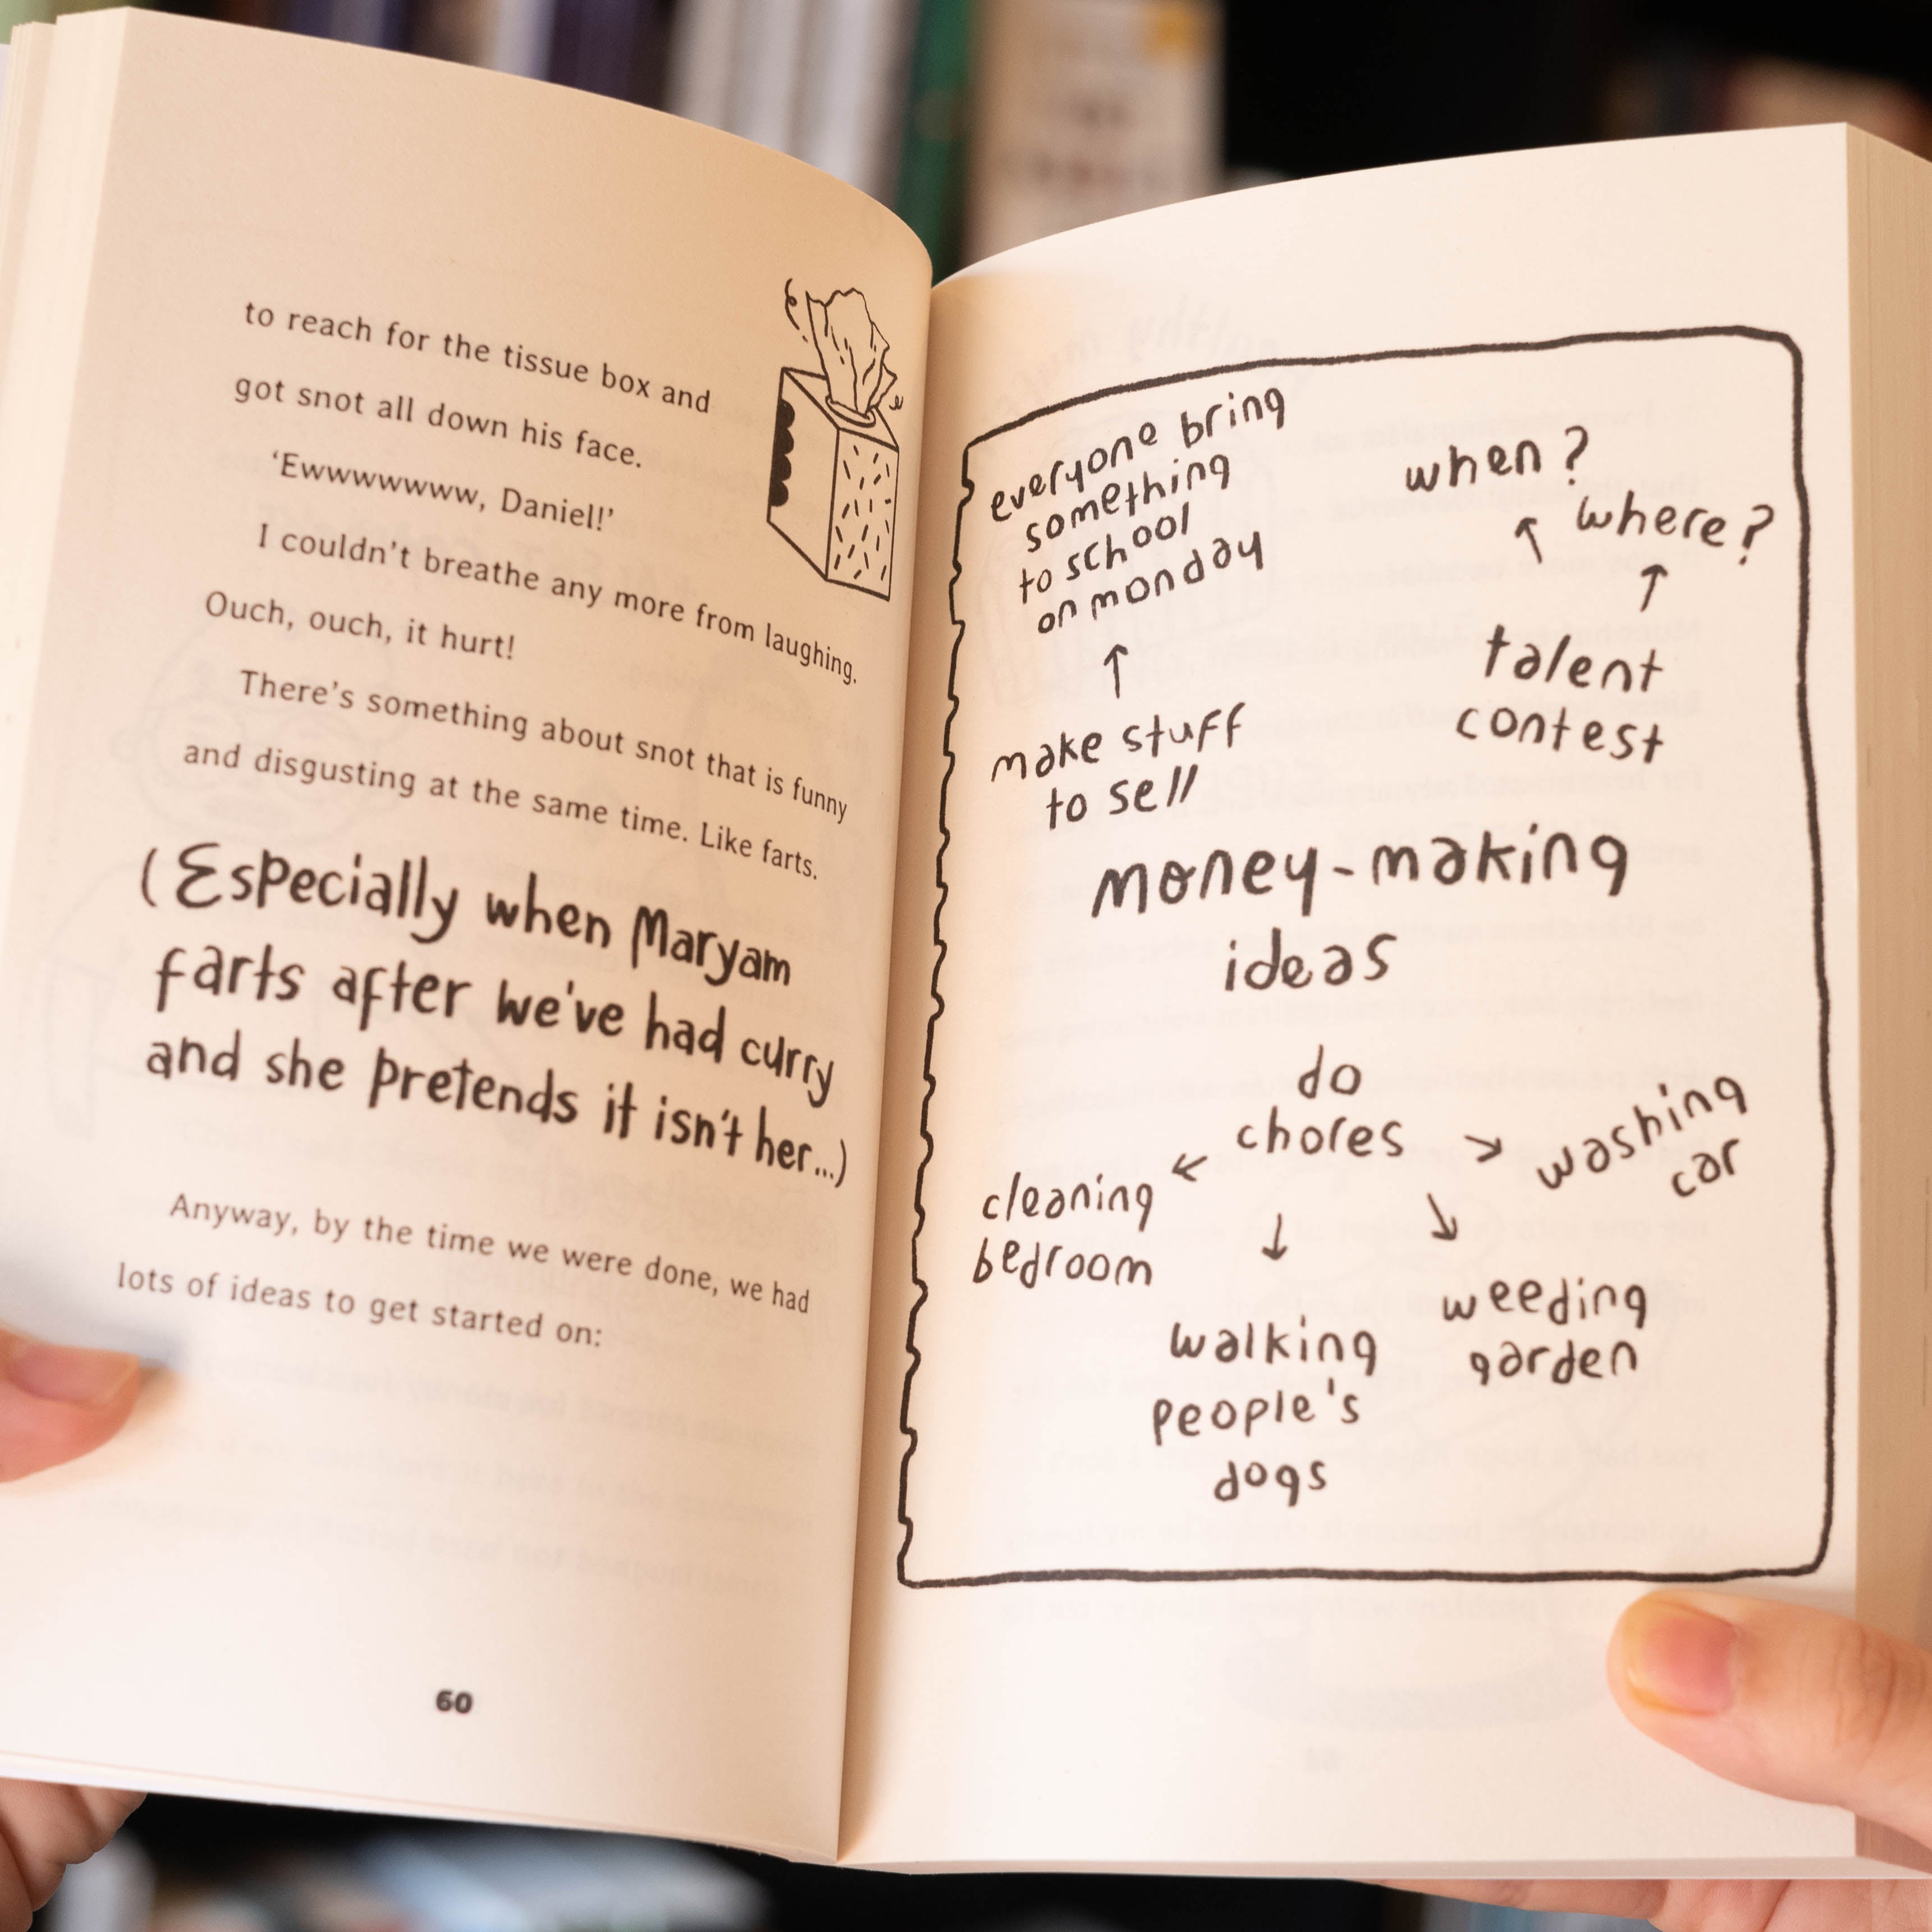 to reach for the tissue box and
got snot all down his face.
‘Ewwwwwww, Daniel!’
I couldn’t breathe any more from laughing.
Ouch, ouch, it hurt!
There’s something about snot that is funny
and disgusting at the same time. Like farts.
(Especially when Maryam
farts after we've had curry
and she pretends it isn't her...)
Anyway, by the time we were done, we had
lots of ideas to get started on:
60
everyone bring
something
to school
on monday
when?
where?
talent
contest
make stuff
to sell
money-making
ideas
do
chores
washing
car
cleaning
bedroom
weeding
garden
walking
people's
dogs